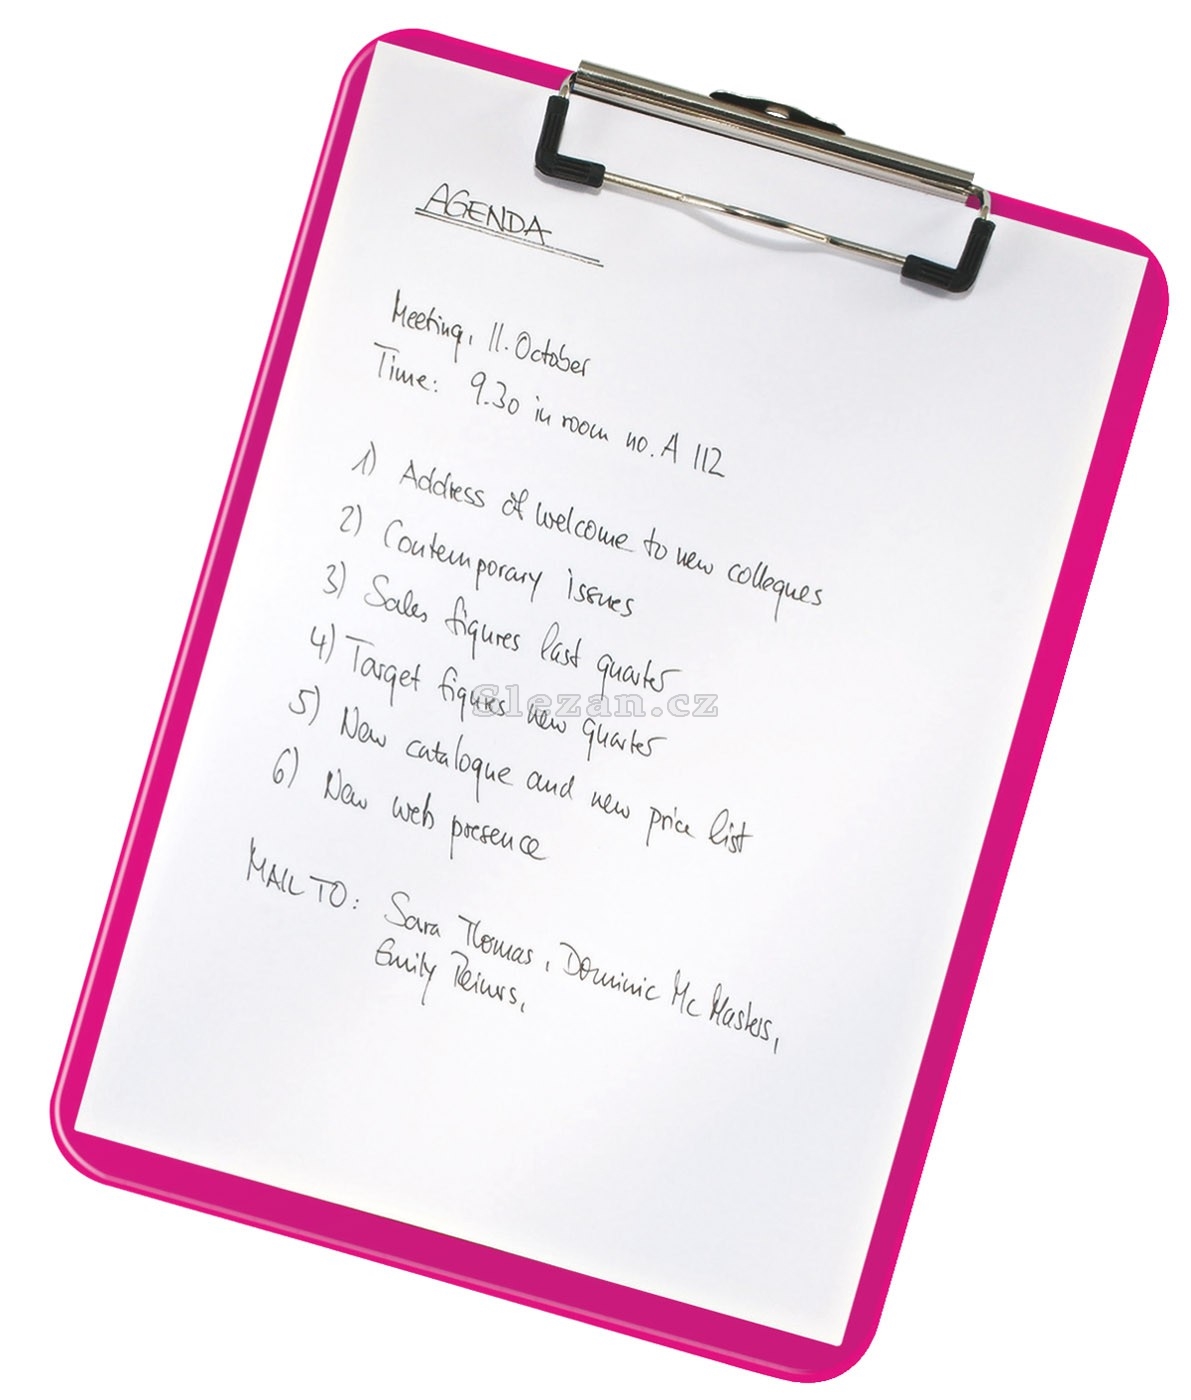 AGENDA
Meeting, 11. October
Time: 9.30 in room no. A 112
1) Address of welcome to new colleques
2) Contemporary issues
3) Sales figures last quarter
4) Target figures new quarter
5) New catalogue and new price list
6) New web presence
MAIL TO: Sara Thomas, Dominic Mc Masters,
Emily Reiners,
Slezan.cz